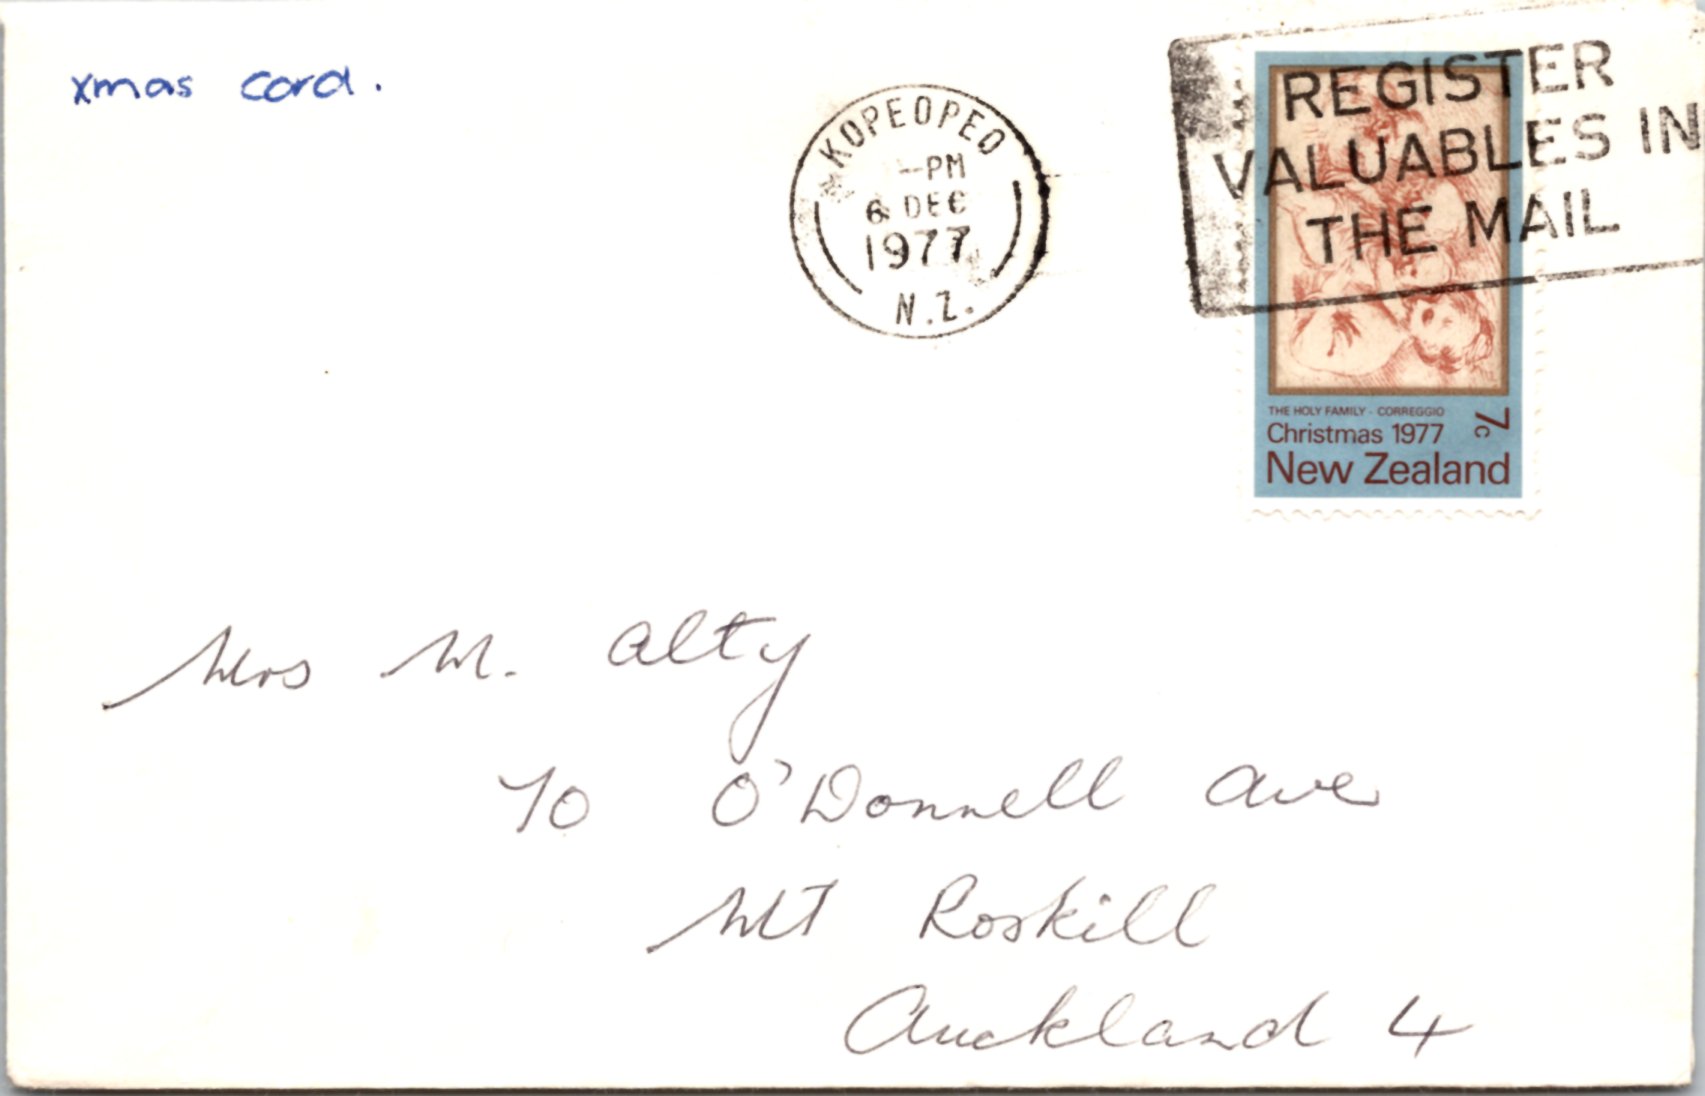 xmas card.
KOPEOPEO
-PM
6 DEC
1977
N.Z.
REGISTER
VALUABLES IN
THE MAIL
THE HOLY FAMILY - CORREGGIO
7c
Christmas 1977
New Zealand
Mrs M. Alty
70 O'Donnell Ave
Mt Roskill
Auckland 4